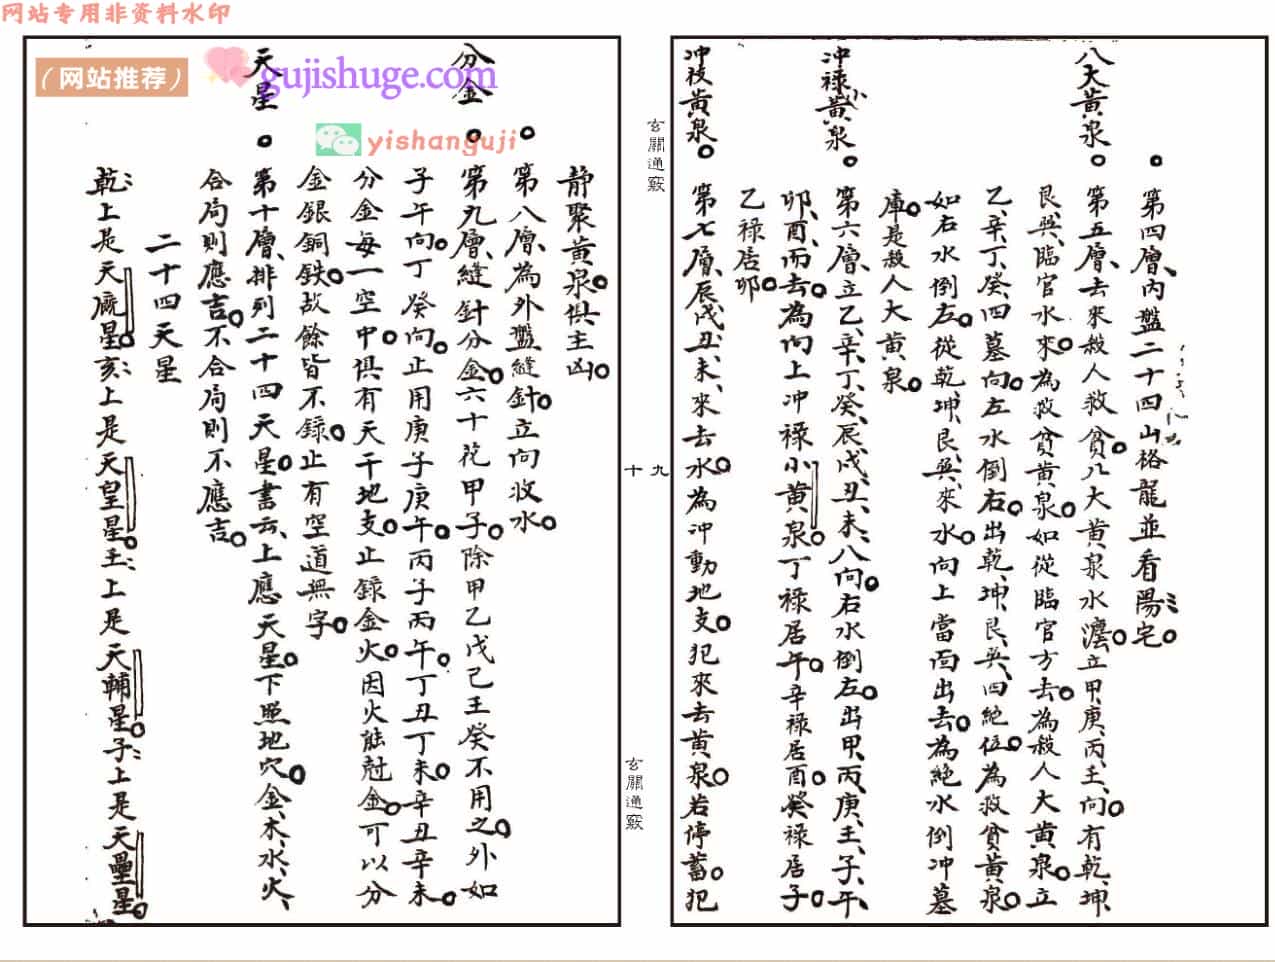 网站专用非资料水印
八大黃泉。
冲祿小黃泉。
冲枝黃泉。
。第四層、內盤二十四山格龍並看陽宅。
第五層、去來殺人救貧。八大黃泉水瀍。立甲、庚、丙、壬、向。有乾、坤、
艮、巽、臨官水來。為救貧黃泉。如從臨官方去。為殺人大黃泉。立
乙、辛、丁、癸、四墓向。左水倒右。出乾、坤、艮、巽、四絕位。為救貧黃泉。
如右水倒左。從乾、坤、艮、巽、來水。向上當面出去。為絕水倒冲墓
庫。是殺人大黃泉。
第六層、立乙、辛、丁、癸、辰、戌、丑、未、八向。右水倒左。出甲、丙、庚、壬、子、午、
卯、酉、而去。為向上冲祿小黃泉。丁祿居午。辛祿居酉。癸祿居子。
乙祿居卯。
第七層、辰、戌、丑、未、來去水。為冲動地支。犯來去黃泉。若停蓄。犯
玄關通竅
十九
玄關通竅
分金。
天星。
静聚黃泉。俱主凶。
。第八層、為外盤縫針。立向收水。
第九層、縫針分金。六十花甲子。除甲乙戊己壬癸不用之。外如
子午向。丁癸向。止用庚子庚午。丙子丙午。丁丑丁未。辛丑辛未。
分金每一空中。俱有天干地支。止錄金火。因火能尅金。可以分
金銀銅鉄。故餘皆不錄。止有空道無字。
第十層、排列二十四天星。書云、上應天星。下照地穴。金、木、水、火、
合局則應吉。不合局則不應吉。
二十四天星
乾上是天廐星。亥上是天皇星。壬上是天輔星。子上是天壘星。
（网站推荐）
gujishuge.com
yishanguji